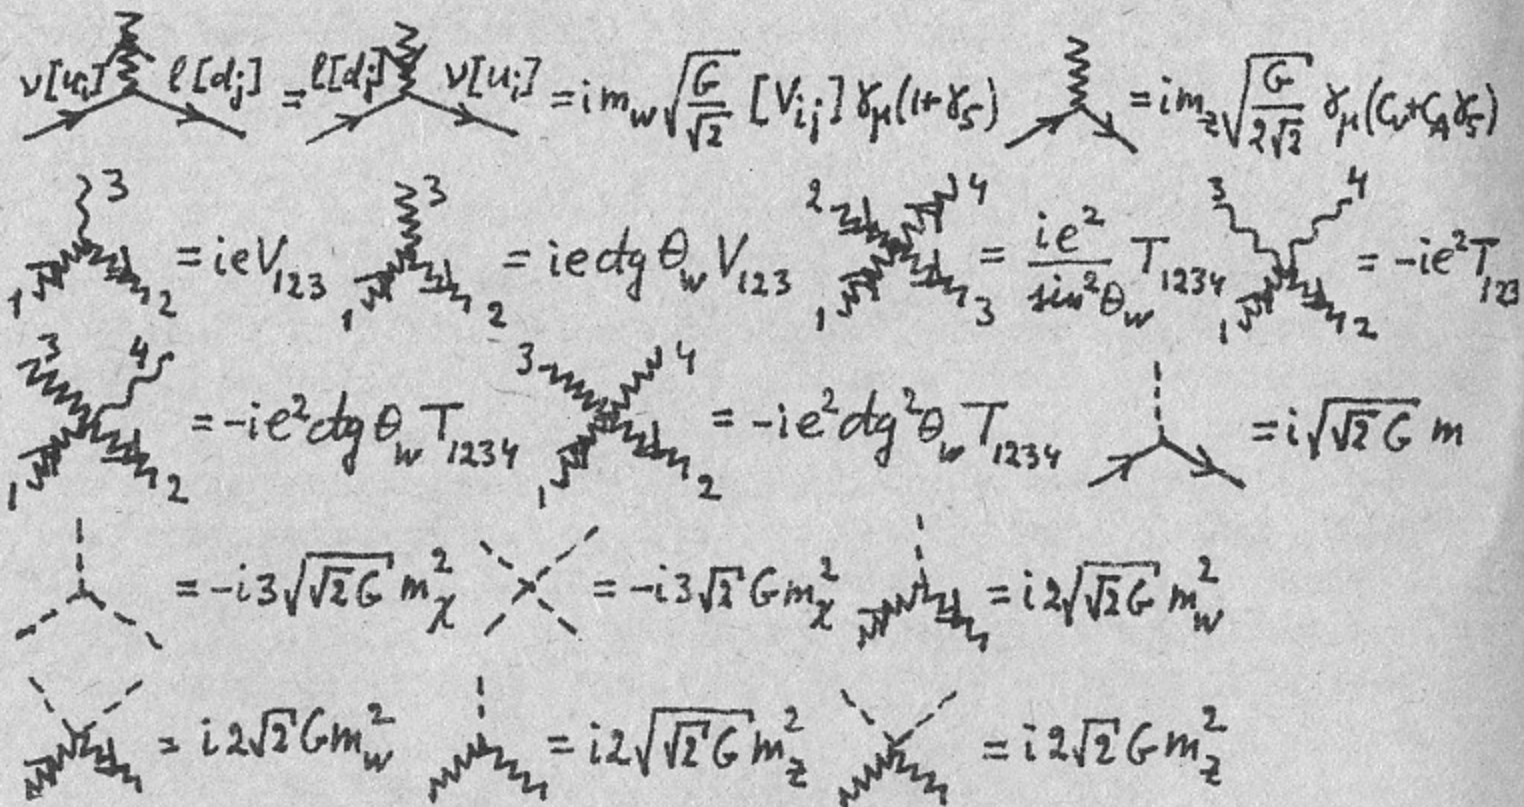 ν[u_i] l[d_j] = l[d_j] ν[u_i] = i m_w √(G/√2) [V_ij] γ_μ(1+γ_5) = i m_z √(G/2√2) γ_μ(C_V+C_Aγ_5)
3 1 2 = ieV_123 3 1 2 = ie ctg θ_w V_123 2 4 1 3 = ie²/sin²θ_w T_1234 3 4 1 2 = -ie²T_123
3 4 1 2 = -ie² ctg θ_w T_1234 3 4 1 2 = -ie² ctg²θ_w T_1234 = i√(√2 G) m
= -i3√(√2 G) m_χ² = -i3√2 G m_χ² = i2√(√2 G) m_w²
= i2√2 G m_w² = i2√(√2 G) m_z² = i2√2 G m_z²